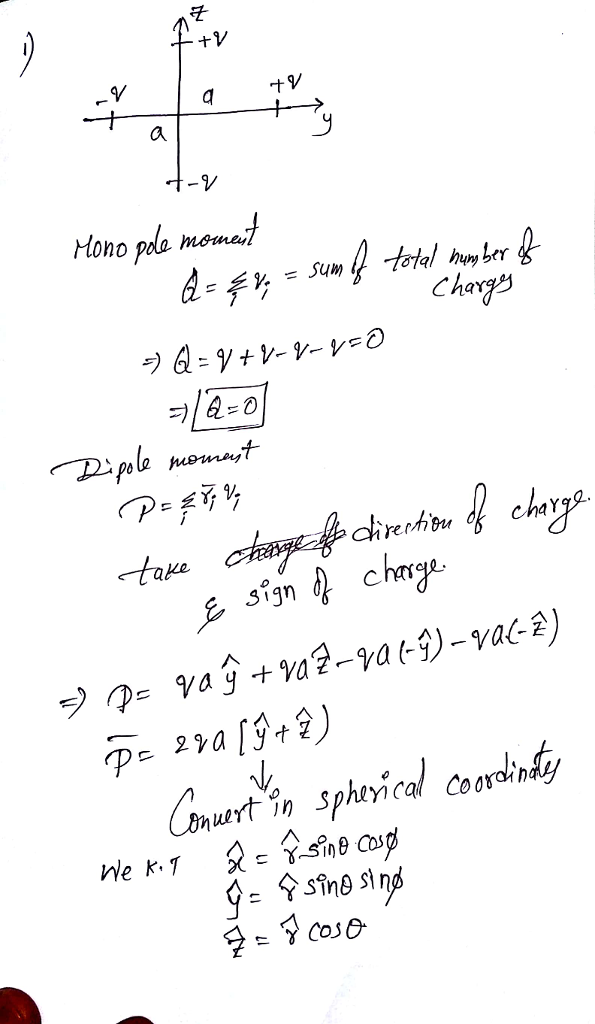 1)
z
+q
-q a +q
a y
-q
Mono pole moment
Q = Σ_i q_i = sum of total number of
Charges
⇒ Q = q + q - q - q = 0
⇒ Q = 0
Dipole moment
P = Σ_i r̄_i q_i
take direction of charge.
& sign of charge.
⇒ P = qa ŷ + qa ẑ - qa (-ŷ) - qa (-ẑ)
P̄ = 2qa [ŷ + ẑ)
↓
Convert in spherical coordinates
We K.T x̂ = r̂ sinθ cosφ
ŷ = r̂ sinθ sinφ
ẑ = r̂ cosθ